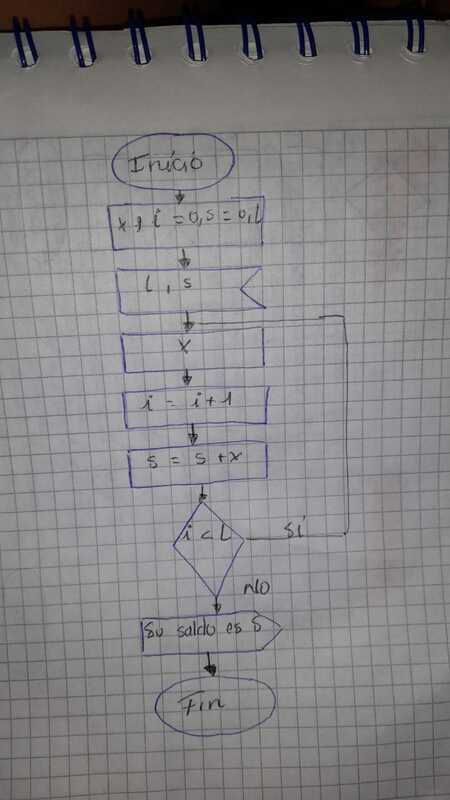 Inició
x, i = 0, s = 0, L
L, s
X
i = i + 1
s = s + x
i < L
Sí
NO
Su saldo es S
Fin